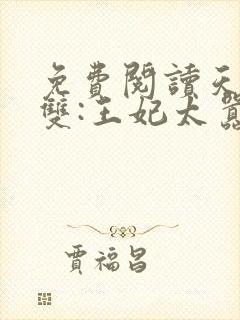 免費閱讀天
雙:王妃太囂
賈福昌